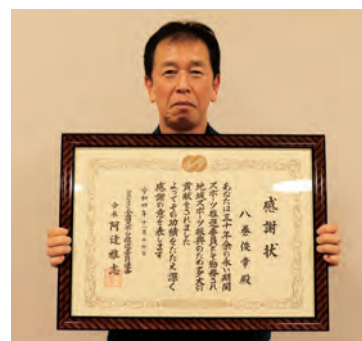 感謝状
八巻俊幸殿
あなたは三十年余の永い期間
スポーツ推進委員として勤務され
地域スポーツ振興のため多大の
貢献をされました
よってその功績をたたえ深く
感謝の意を表します
令和四年十一月十七日
会長 阿達雅志